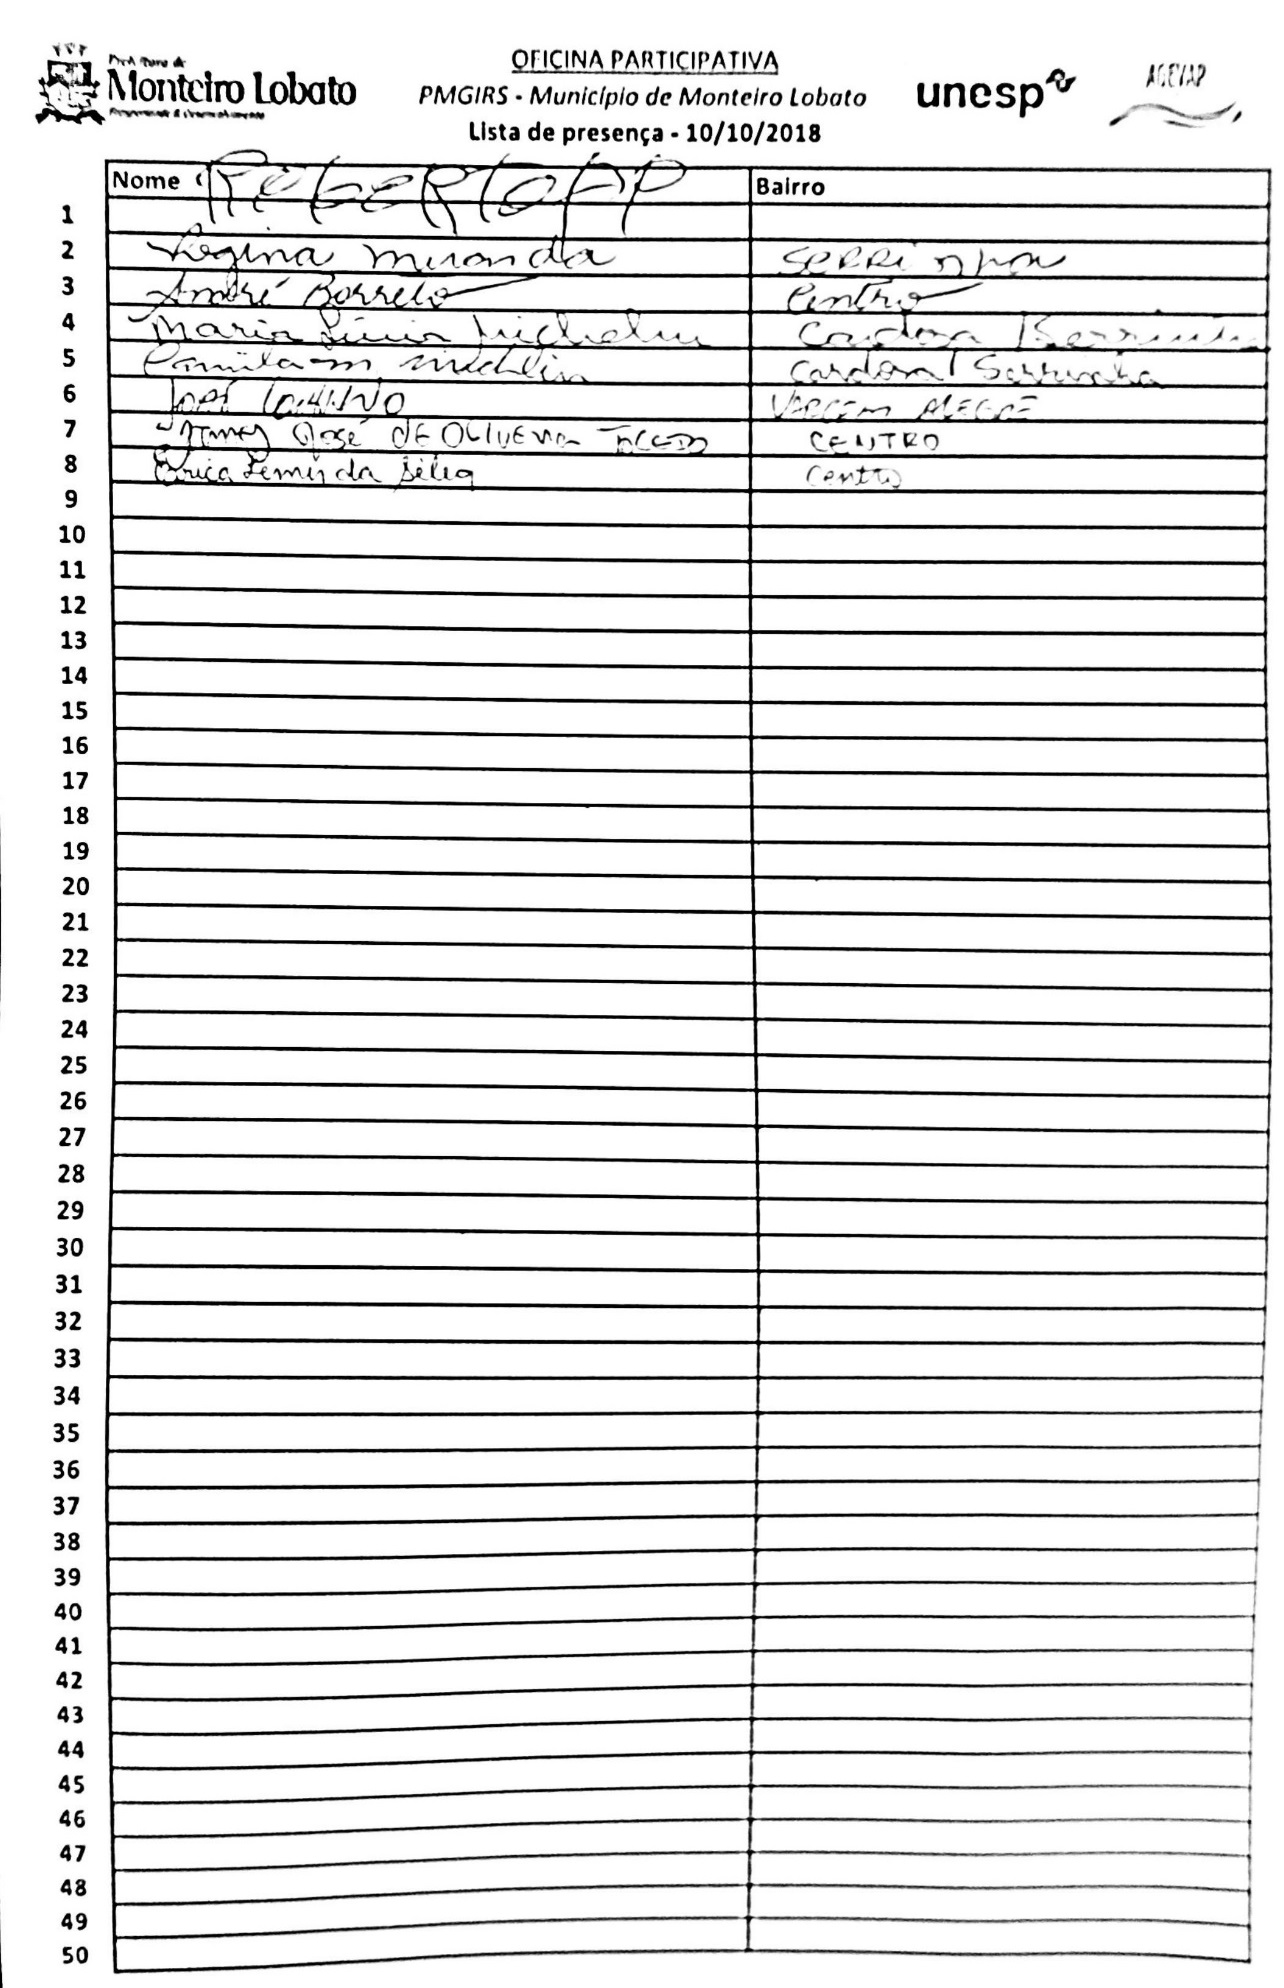 Prefeitura de
Monteiro Lobato
OFICINA PARTICIPATIVA
PMGIRS - Município de Monteiro Lobato
Lista de presença - 10/10/2018
unesp
AGEVAP
Nome Bairro
1
2 Regina Miranda Serrinha
3 André Barreto Centro
4 Maria Lúcia
5 Camila m Cardoso / Serrinha
6 José VARGEM ALEGRE
7 José DE OLIVEIRA CENTRO
8 Erica Lemes da Centro
9
10
11
12
13
14
15
16
17
18
19
20
21
22
23
24
25
26
27
28
29
30
31
32
33
34
35
36
37
38
39
40
41
42
43
44
45
46
47
48
49
50